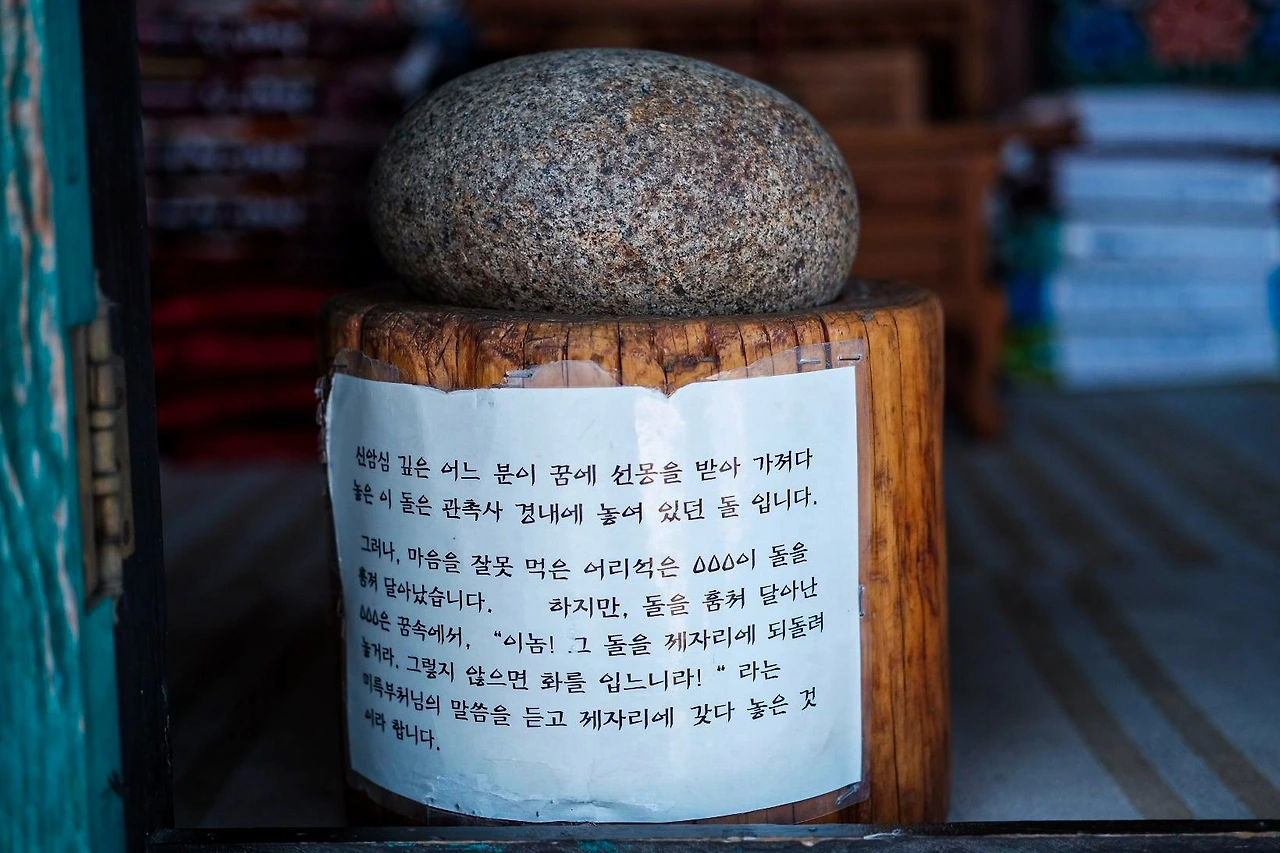 신암심 깊은 어느 분이 꿈에 선몽을 받아 가져다
놓은 이 돌은 관촉사 경내에 놓여 있던 돌 입니다.
그러나, 마음을 잘못 먹은 어리석은 △△△이 돌을
훔쳐 달아났습니다. 하지만, 돌을 훔쳐 달아난
△△△은 꿈속에서, “이놈! .그 돌을 제자리에 되돌려
놓거라. 그렇지 않으면 화를 입느니라! “ 라는
미륵부처님의 말씀을 듣고 제자리에 갖다 놓은 것
이라 합니다.